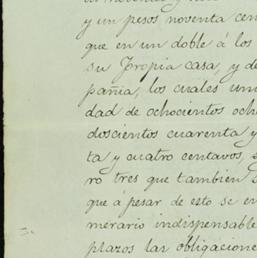 y un pesos noventa cen
que en un doble á los
su Propia casa, y de
pañia, los cuales uni
dad de ochocientos och
doscientos cuarenta y
ta y cuatro centavos, s
ro tres que tambien
que á pesar de esto se en
merario indispensable
plazos las obligacione